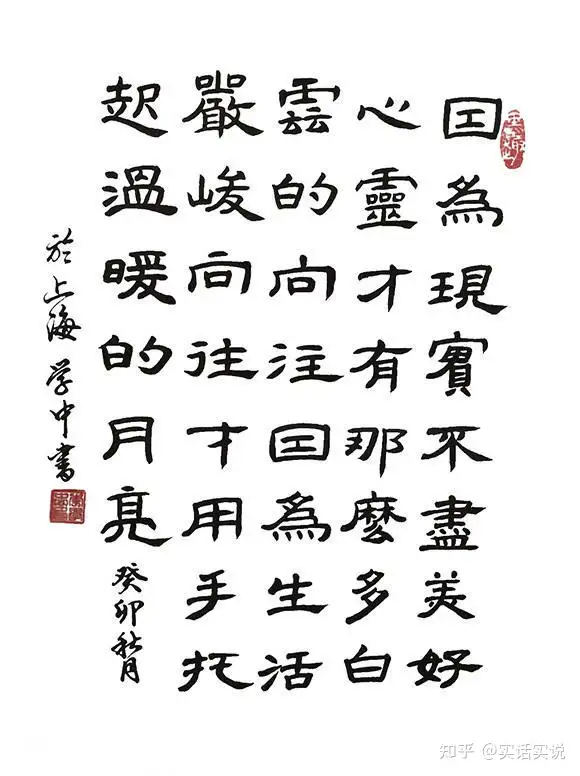 囙為現實不盡美好
心靈才有那麼多白
雲的向注囙為生活
嚴峻向往才用手托
起溫暖的月亮
癸卯秋月
於上海学中書
知乎 @实话实说